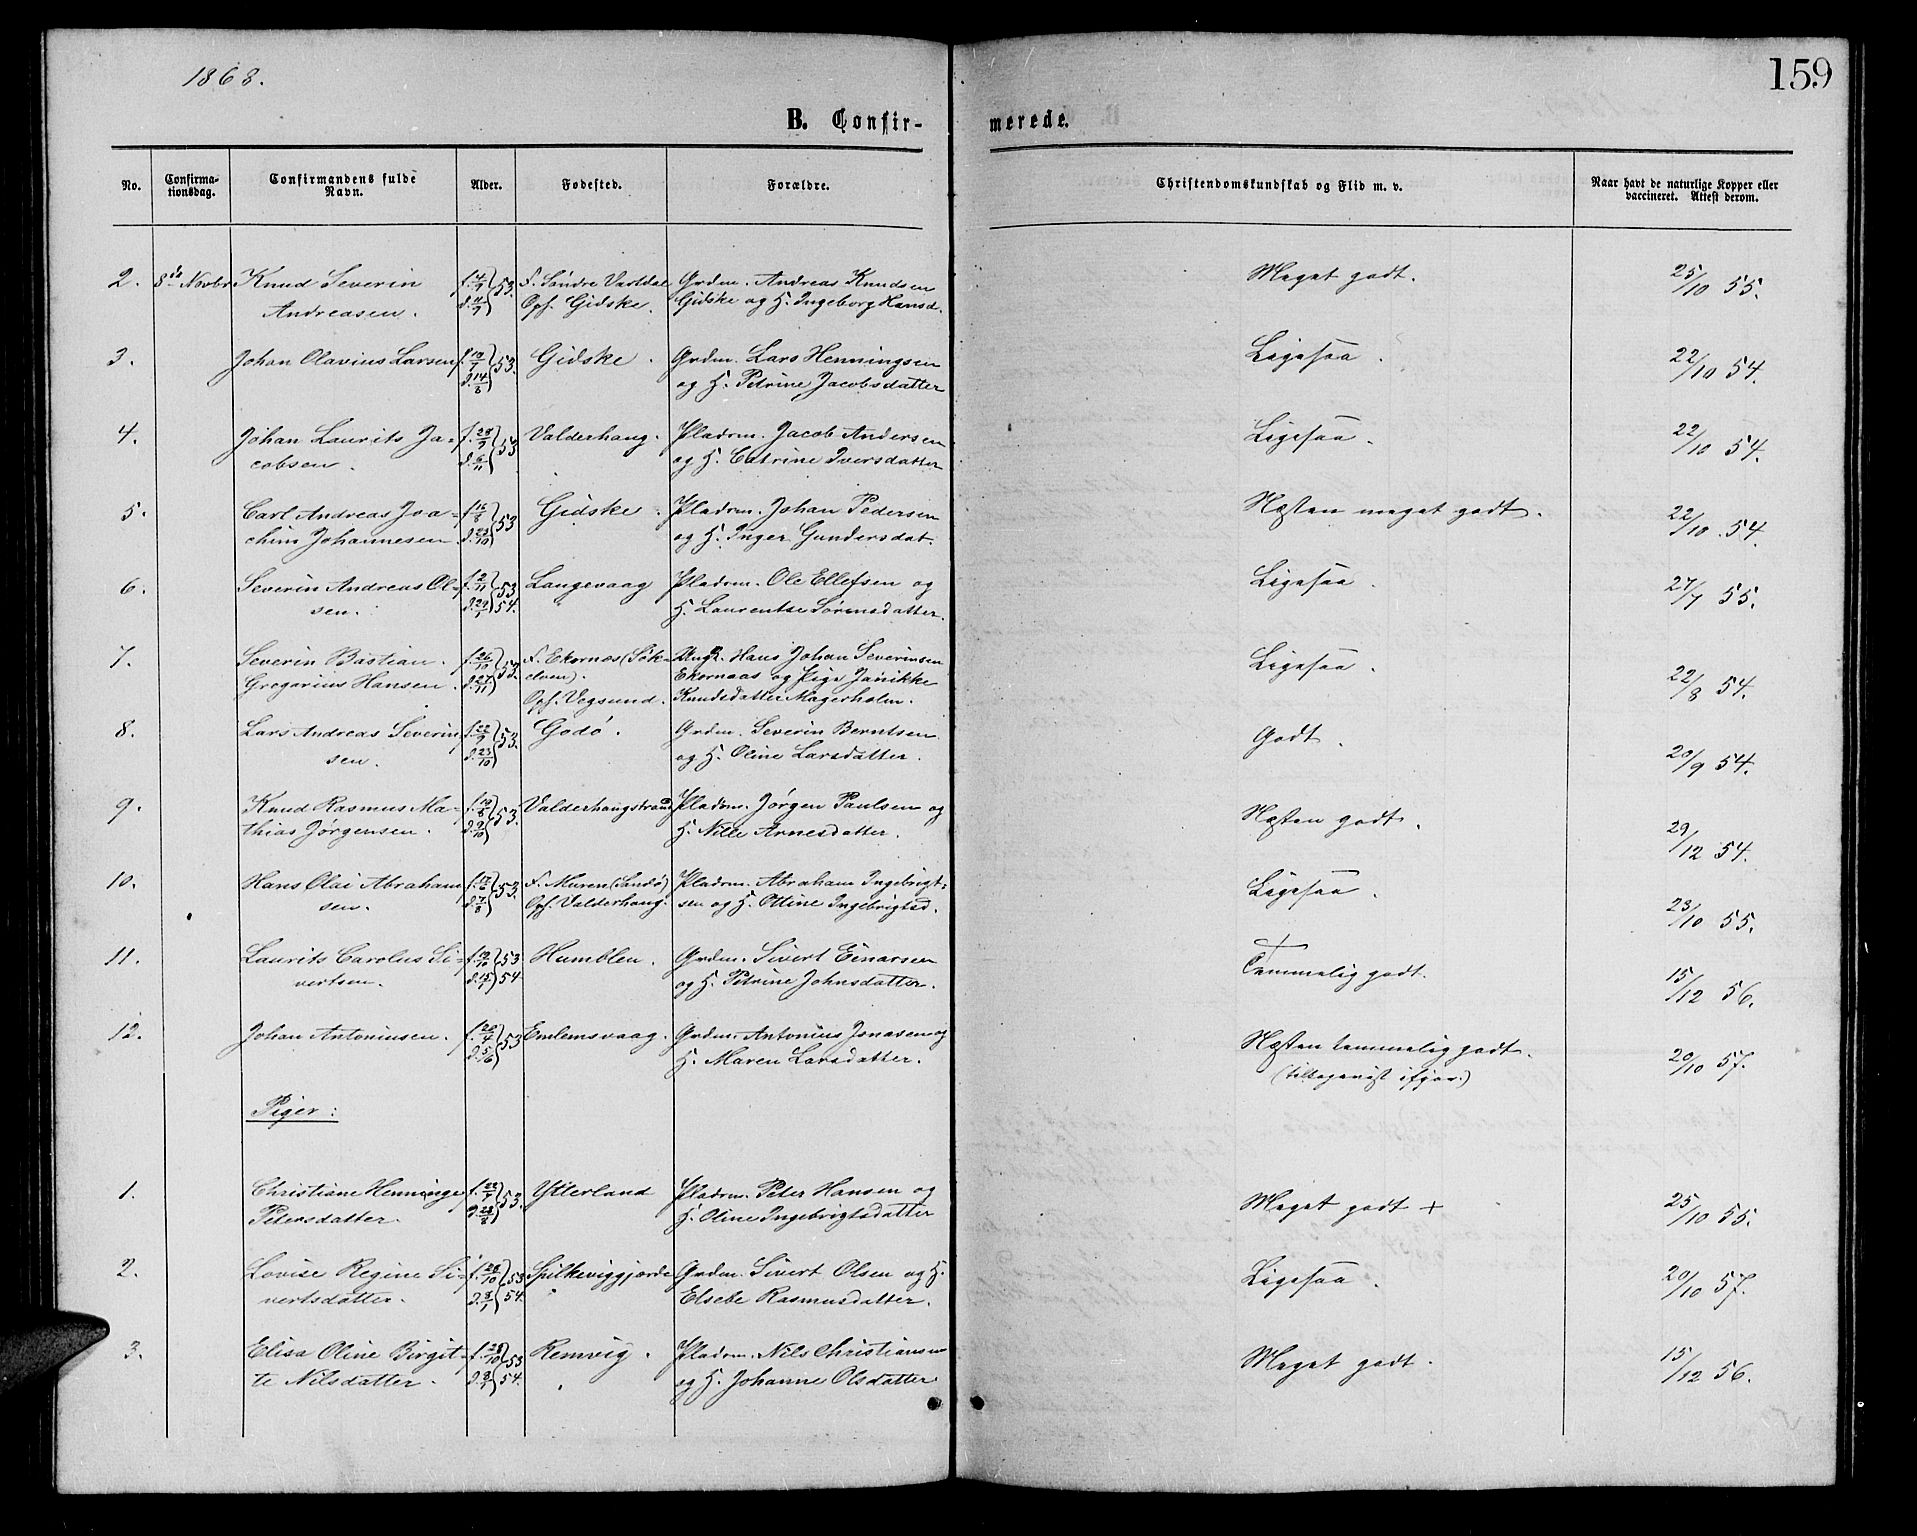 1868.
159
B. Confir-
merede.
No.
Confirma-
tionsdag.
Confirmandens fulde
Navn.
Alder.
Fødested.
Forældre.
Christendomskundskab og Flid m. v.
Naar havt de naturlige Kopper eller
vaccineret. Attest derom.
2. 8de Novbr Knud Severin f. 4/7 53. F. Søndre Vartdal Grdm. Andreas Knudsen Meget godt. 25/10 55.
Andreasen. d. Opf. Gidske. Gidske og H. Ingeborg Hansd.
3. Johan Olavius Larsen f. 53. Gidske. Grdm. Lars Henningsen Ligesaa. 22/10 54.
d. 14/8 og H. Petrine Jacobsdatter
4. Johan Laurits Ja- f. 53 Valderhaug. Pladsm. Jacob Andersen Ligesaa. 22/10 54.
cobsen. d. 6/11 og H. Catrine Iversdatter
5. Carl Andreas Joa- f. 16/8 53 Gidske. Pladsm. Johan Pedersen Næsten meget godt. 22/10. 54.
chim Johannesen d. 23/10 og H. Inger Gundersdat.
6. Severin Andreas Ol- f. 2/11 53 Langevaag Pladsm. Ole Ellefsen og Ligesaa. 27/7 55.
sen. d. 29/1 54. H. Laurentse Sørensdatter.
7. Severin Bastian. f. 26/10 53. F. Ekornæs (Søk- Ungk. Hans Johan Severinsen Ligesaa. 22/8 54.
Gregorius Hansen. d. 27/11 elven). Ekornaas og Pige Janikke
Opf. Vegsund. Knudsdatter Magerholm.
8. Lars Andreas Severin f. 22/9 53. Godø. Grdm. Severin Berntsen Godt. 20/9 54.
sen. d. 23/10 og H. Oline Larsdatter.
9. Knud Rasmus Ma- f. 19/8 53. Valderhaugstrand Pladsm. Jørgen Paulsen og Næsten godt. 29/12 54.
thias Jørgensen. d. 9/10 H. Nille Arnesdatter.
10. Hans Olai Abraham f. 53. F. Muren (Sandø) Pladsm. Abraham Ingebrigt- Ligesaa. 23/10 55.
sen. d. 7/8 Opf. Valderhaug. sen og H. Ottine Ingebrigtsd.
11. Laurits Carolus Si- f. 53 Humblen. Grdm. Sivert Einarsen Temmelig godt. 15/12 56.
vertsen. d. 15/1 54 og H. Petrine Johnsdatter.
12. Johan Antoniusen. f. 26/4 53 Emlemsvaag. Grdm. Antonius Jonasen og Næsten temmelig godt. 20/10 57.
d. 5/6 H. Maren Larsdatter.
Piger:
1. Christiane Henninge f. 22/7 53. Ytterland Pladsm. Peter Hansen og Meget godt + 25/10 55.
Petersdatter. d. 28/8 H. Oline Ingebrigtsdatter
2. Lovise Regine Si- f. 28/10 53 Spilkeviggjerde Grdm. Sivert Olsen og H. Ligesaa. 20/10 57.
vertsdatter. d. 8/1 54. Elsebe Rasmusdatter.
3. Elisa Oline Birgit- f. 28/10 53 Remvig. Pladsm. Nils Christiansen Meget godt. 15/12 56.
te Nilsdatter. d. 8/1 54. og H. Johanne Olsdatter